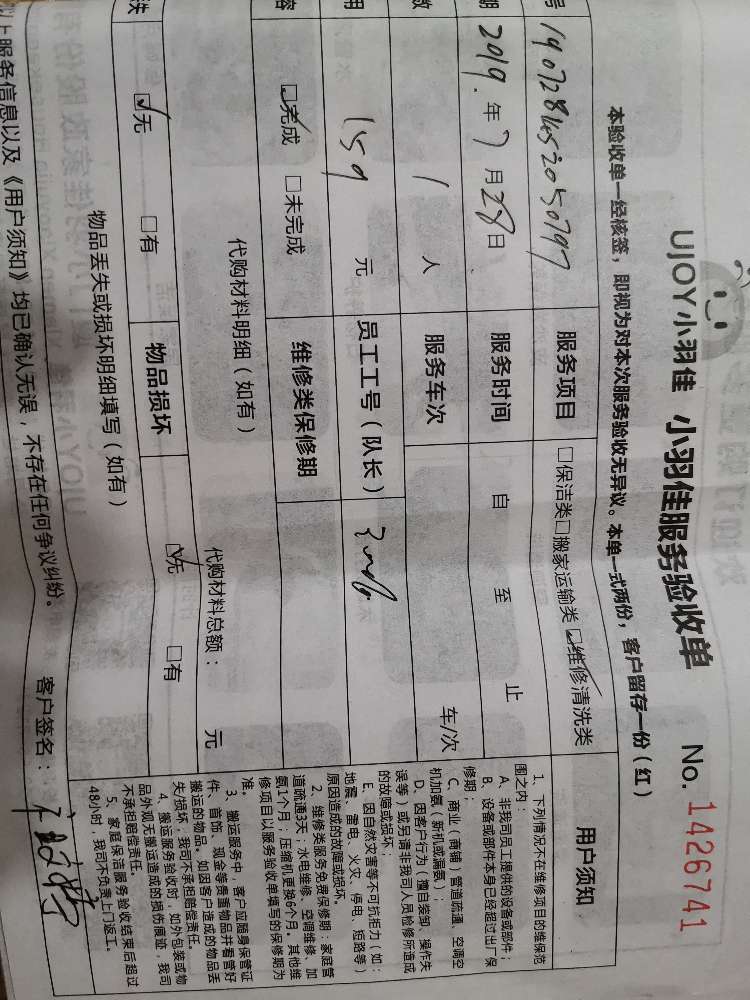 UJOY小羽佳 小羽佳服务验收单 No. 1426741
本验收单一经核签，即视为对本次服务验收无异议。本单一式两份，客户留存一份（红）
号 服务项目 □保洁类□搬家运输类☑维修清洗类
期 2019.年7月28日 服务时间 自 至 止
数 1 人 服务车次 车/次
用 159 元 员工工号（队长）
容 ☑完成 □未完成 维修类保修期
代购材料明细（如有） 代购材料总额： 元
失 ☑无 □有 物品损坏 ☑无 □有
物品丢失或损坏明细填写（如有）
以上服务信息以及《用户须知》均已确认无误，不存在任何争议纠纷。 客户签名：
用户须知
1、下列情况不在维修项目的维保范
围之内：
A、非我司员工提供的设备或部件；
B、设备或部件本身已经超过出厂保
修期；
C、商业（商铺）管道疏通、空调空
机加氨（新机或漏氨）；
D、因客户行为（擅自装卸、操作失
误等）或另请非我司人员检修所造成
的故障或损坏；
E、因自然灾害等不可抗拒力（如：
地震、雷电、火灾、停电、短路等）
原因造成的故障或损坏。
2、维修类服务免费保修期：家庭管
道疏通3天；水电维修、空调维修、加
氨1个月；压缩机更换6个月。其他维
修项目以服务验收单填写的保修期为
准。
3、搬运服务中，客户应随身保管证
件、首饰、现金等贵重物品并看管好
搬运的物品。如因客户造成的物品丢
失损坏，我司不承担赔偿责任。
4、搬运服务验收时，如外包装或物
品外观无搬运造成的损伤痕迹，我司
不承担赔偿责任。
5、家庭保洁服务验收结束后超过
48小时，我司不负责上门返工。